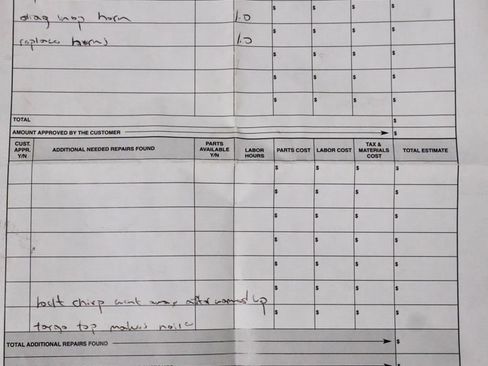 diag inop horn 1.0 $ $ $ $
replace horns 1.0 $ $ $ $
$ $ $ $
$ $ $ $
$ $ $ $
TOTAL $
AMOUNT APPROVED BY THE CUSTOMER $
CUST. APPR. Y/N ADDITIONAL NEEDED REPAIRS FOUND PARTS AVAILABLE Y/N LABOR HOURS PARTS COST LABOR COST TAX & MATERIALS COST TOTAL ESTIMATE
$ $ $ $
$ $ $ $
$ $ $ $
$ $ $ $
$ $ $ $
belt chirp went away after warmed up $ $ $ $
targa top makes noise $ $ $ $
TOTAL ADDITIONAL REPAIRS FOUND $